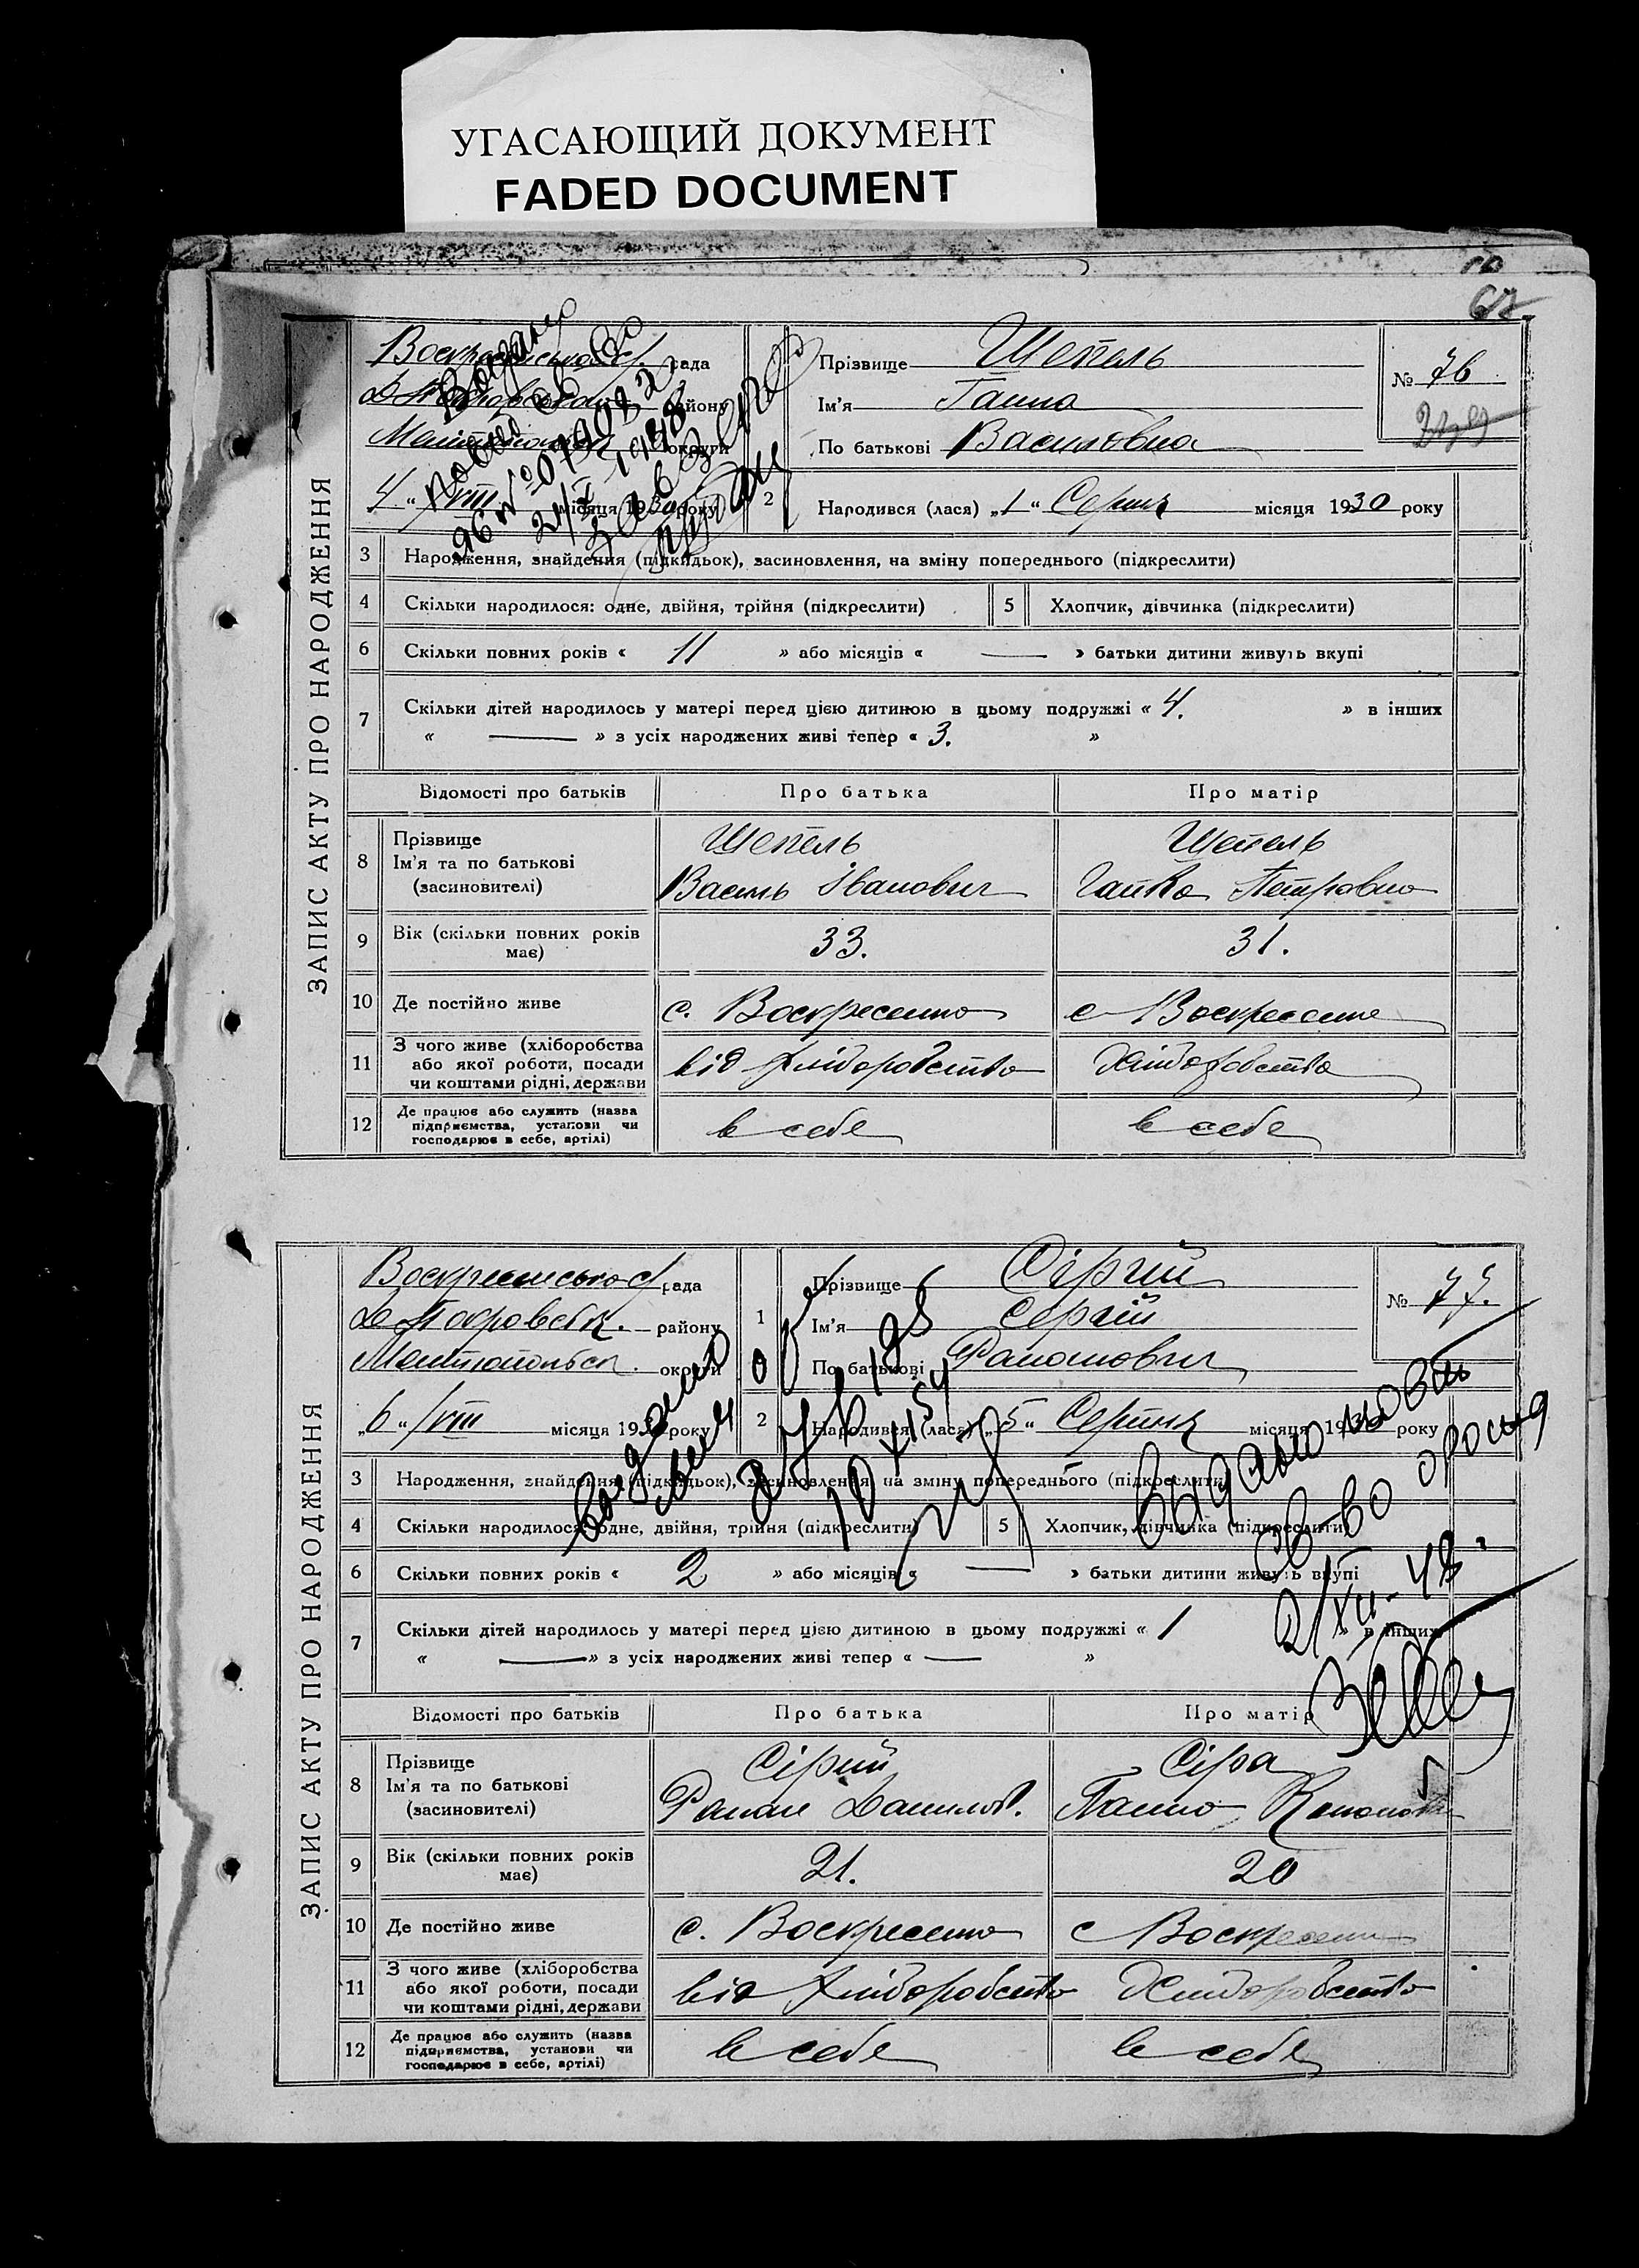 УГАСАЮЩИЙ ДОКУМЕНТ
FADED DOCUMENT
ЗАПИС АКТУ ПРО НАРОДЖЕННЯ
рада
району
округи
4 " VIII місяця 1930 року
Прізвище Шепель
Ім'я Ганна
По батькові Василовна
№ 76
2 Народився (лася) „1" Серпня місяця 1930 року
3 Народження, знайдення (підкидьок), засиновлення, на зміну попереднього (підкреслити)
4 Скільки народилося: одне, двійня, трійня (підкреслити) 5 Хлопчик, дівчинка (підкреслити)
6 Скільки повних років « 11 » або місяців « — » батьки дитини живуть вкупі
7 Скільки дітей народилось у матері перед цією дитиною в цьому подружжі « 4. » в інших
« — » з усіх народжених живі тепер « 3. »
Відомості про батьків Про батька Про матір
8 Прізвище
Ім'я та по батькові
(засновителі)
Шепель
Василь Іванович
Шепель
Петровна
9 Вік (скільки повних років має) 33. 31.
10 Де постійно живе с. Воскресенно с Воскресенне
11 З чого живе (хліборобства
або якої роботи, посади
чи коштами рідні, держави
від хліборобства хліборобства
12 Де працює або служить (назва
підприємства, установи чи
господарює в себе, артілі)
в себе в себе
ЗАПИС АКТУ ПРО НАРОДЖЕННЯ
рада
району
округи
„6" VIII місяця 1930 року
1 Прізвище Сірий
Ім'я Сергій
По батькові Раманович
№ 77.
2 Народився (лася) „5" Серпня місяця 1930 року
3 Народження, знайдення (підкидьок), засиновлення, на зміну попереднього (підкреслити)
4 Скільки народилося: одне, двійня, трійня (підкреслити) 5 Хлопчик, дівчинка (підкреслити)
6 Скільки повних років « 2 » або місяців « — » батьки дитини живуть вкупі
7 Скільки дітей народилось у матері перед цією дитиною в цьому подружжі « 1 » в інших
« — » з усіх народжених живі тепер « — »
Видано
21/XII-48
Відомості про батьків Про батька Про матір
8 Прізвище
Ім'я та по батькові
(засиновителі)
Сірий
Раман Данилов.
Сіра
9 Вік (скільки повних років має) 21. 20
10 Де постійно живе с. Воскресенно с Воскресенно
11 З чого живе (хліборобства
або якої роботи, посади
чи коштами рідні, держави
від хліборобства хліборобства
12 Де працює або служить (назва
підприємства, установи чи
господарює в себе, артілі)
в себе в себе